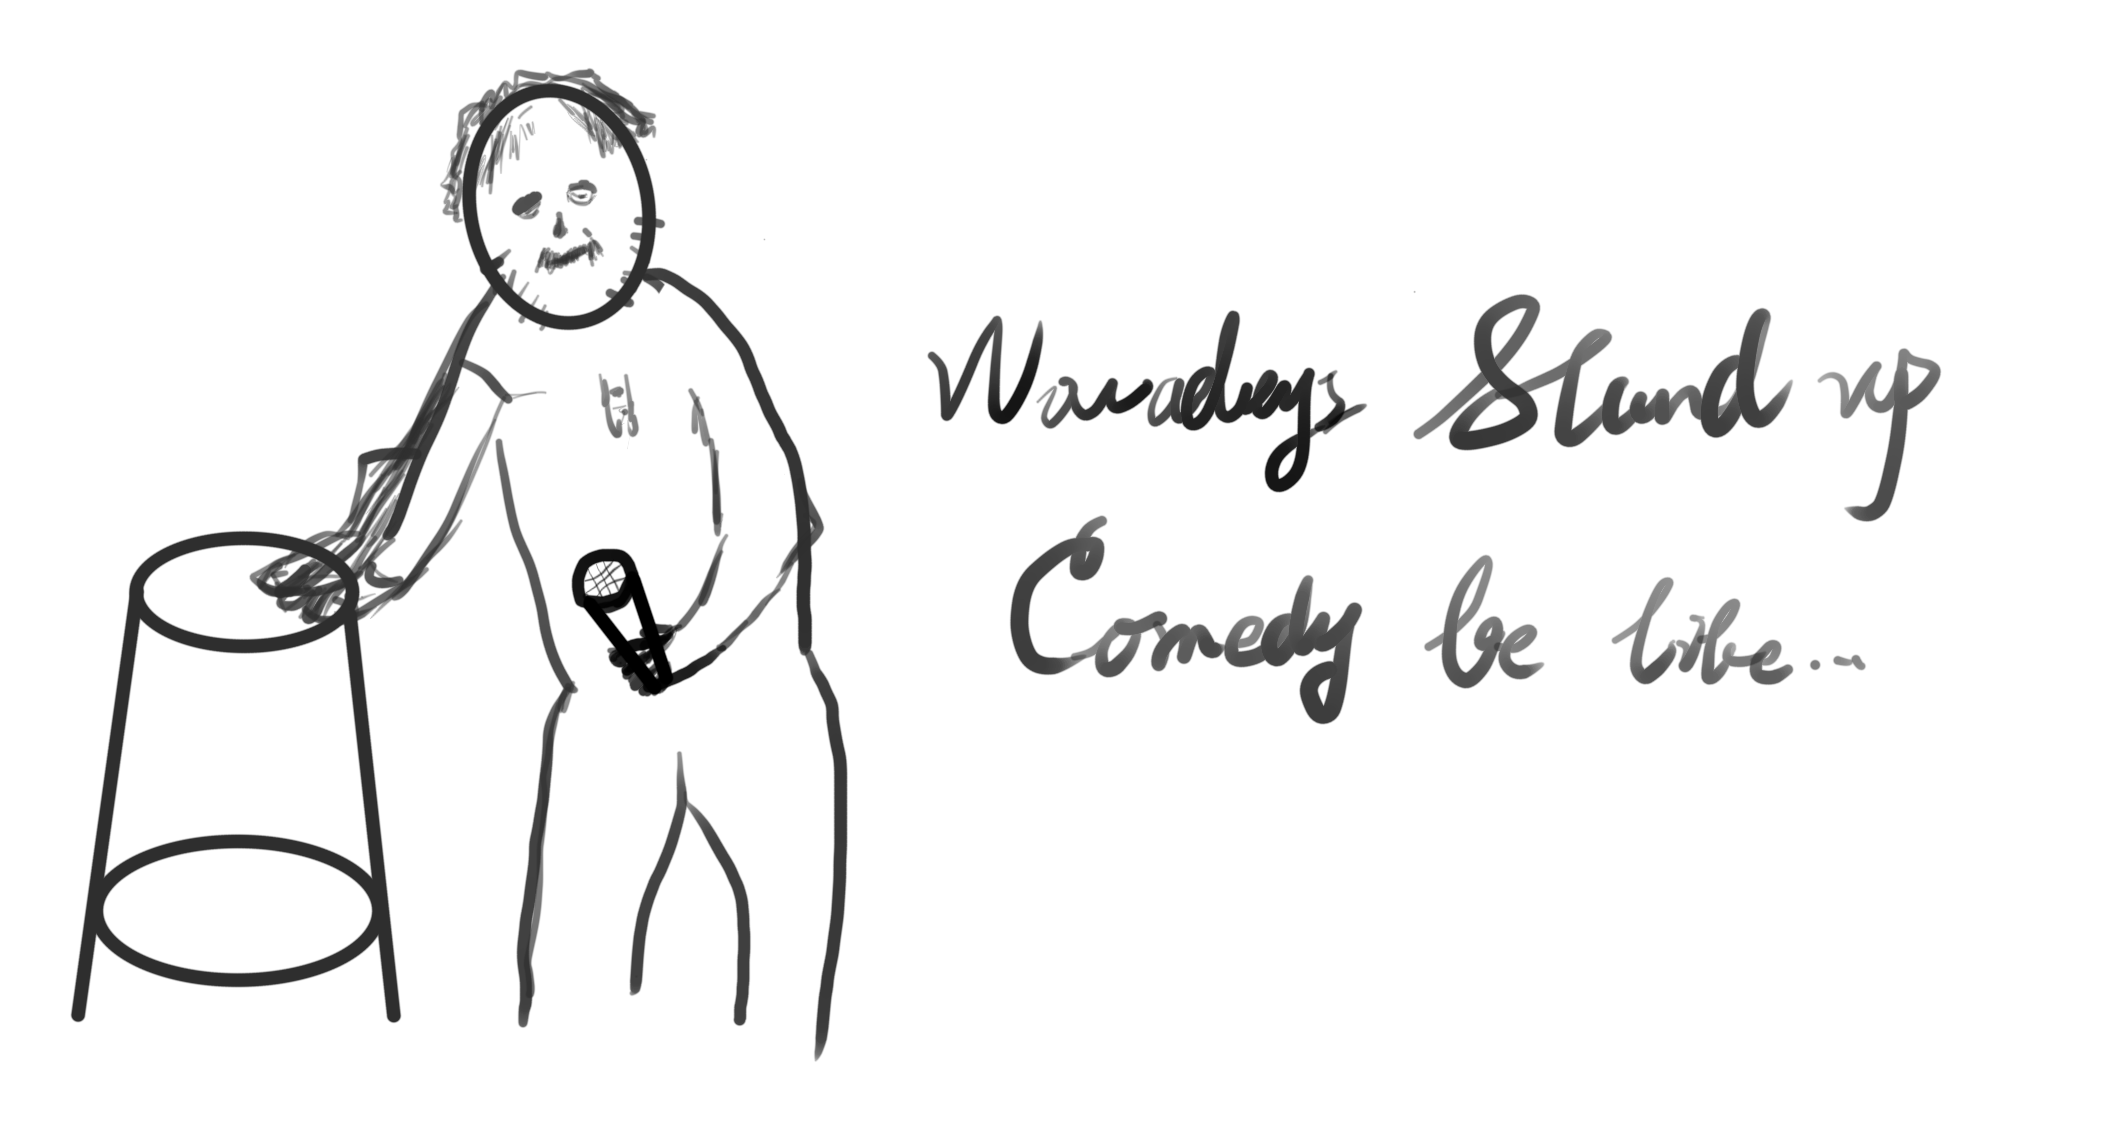 Nowadays Stand up
Comedy be like...